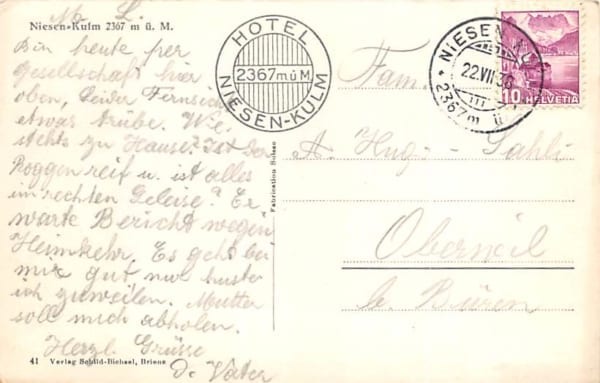 M. L.
Niesen-Kulm 2367 m ü. M.
Bin heute per
Gesellschaft hier
oben, Leider Fernsicht
etwas trübe. Wie
stehts zu Hause? Ist der
Roggen reif u. ist alles
im rechten Geleise? Er
warte Bericht wegen
Heimkehr. Es geht bei
mir gut nur huste
ich zuweilen. Mutter
soll mich abholen.
Herzl. Grüsse
d. Vater
41 Verlag Schild-Bichsel, Brienz
HOTEL
2367 m ü M
NIESEN-KULM
Fabrication Suisse
NIESEN
22.VII.36
2367m ü
10 HELVETIA
Fam.
A. Hug-Sahli
Oberwil
b. Büren